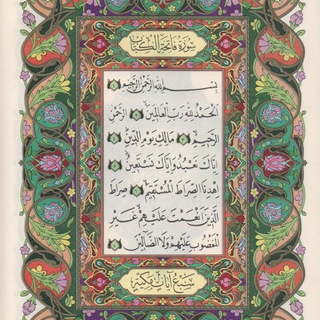 سورة فاتحة الكتاب
بسم الله الرحمن الرحيم
الحمد لله رب العالمين الرحمن
الرحيم مالك يوم الدين
إياك نعبد وإياك نستعين
اهدنا الصراط المستقيم صراط
الذين أنعمت عليهم غير
المغضوب عليهم ولا الضالين
سبع آيات مكية